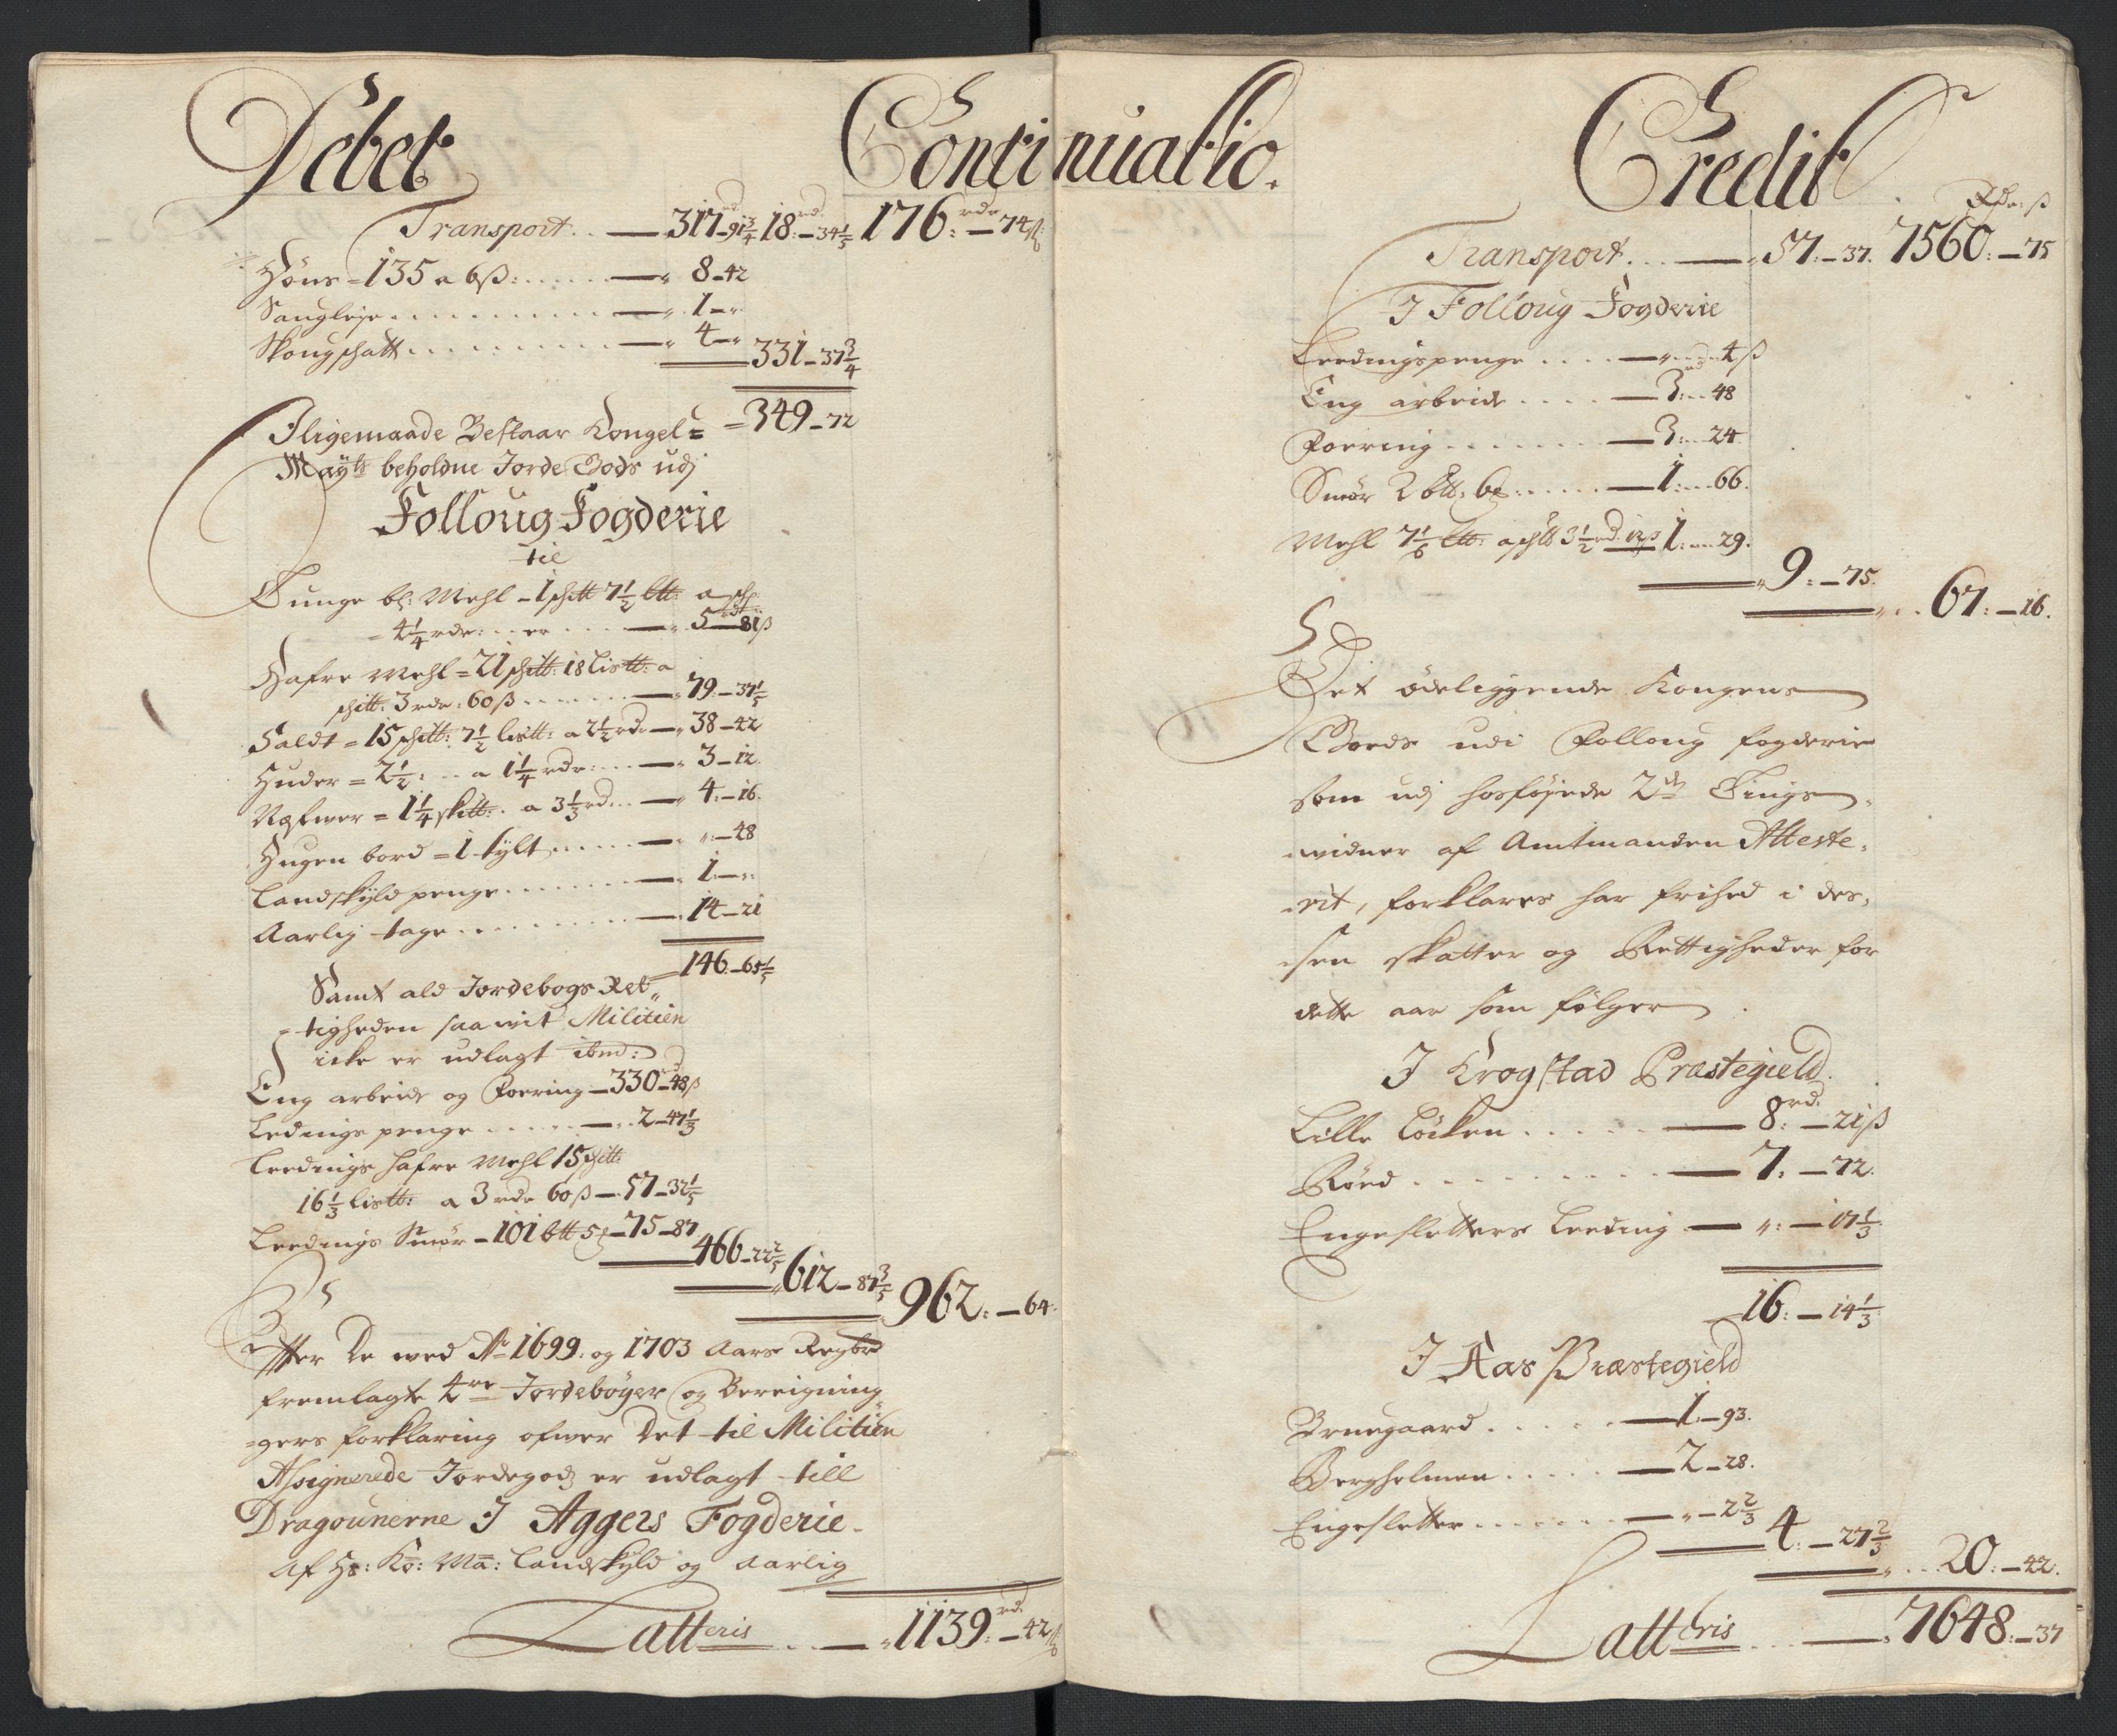 Debet
Continuatio.
Transport . . — 317 rd – 91 3/4 18 rd – 34 1/5 176: rdr – 74 ß
Høns = 135 a 6 ß: . . . . . — „ 8 – 42
Saugleje . . . . . . . . — „ 1 – „
Skougschatt . . . . . . . — „ 4 – „
331 – 37 3/4
Iligemaade Bestaar Kongel: = 349 – 72
Mayts beholdne Jorde Gods udj
Folloug Fogderie
til
Tunge bl: Mehl – 1 schtt 7 1/2 ltt: a schp:
= 4 1/4 rdr: . . er . . . . — „ 5 – 81 ß
Hafre Mehl = 21 schtt: 18 Listt: a
schtt: 3 rdr: 60 ß . . . . . — „ 79 – 37 1/5
Saldt = 15 schtt: 7 1/2 listt: a 2 1/2 rdr — „ 38 – 42
Huder = 2 1/2: . . a 1 1/4 rdr: . . . — „ 3 – 12
Næfwer = 1 1/4 skitt: . a 3 1/3 rd . . — „ 4 – 16.
Hugen bord = 1 tylt . . . . — „ – 48
Landskyld penge . . . . . . — „ 1 – „
Aarlig tage . . . . . . . — „ 14 – 21
146 – 65 1/5
Samt ald Jordebogs Ret„
= tigheden saawit Militien
icke er udlagt ibm:
Eng arbeide og Foering — 330 rd – 48 ß
Ledings penge . . . . . — „ 2 – 47 1/3
Leedings hafre Mehl 15 schtt:
16 1/3 listt: a 3 rdr 60 ß — 57 – 32 1/5
Leedings Smør – 101 btt 5 – 75 – 87
466 – 22 2/5
612 – 87 3/5
962: – 64
Efter De med Ao 1699. og 1703 Aars Regbr
fremlagte 4re Jordebøger og Bereigning
= gers forklaring ofwer Det til Militien
Assignerede Jordegodz er udlagt till
Dragounerne I Aggers Fogderie.
Af Hs: Ko: Ma: Landskyld og aarlig
Latteris . . — „ 1139: rd – 42 ß
Credit
Rdr: ß
Transport. . . — „ 57: – 37. 7560: – 75
I Folloug Fogderie
Leedingspenge . . . . — „ – 4 ß
Eng arbeide . . . . — 3: – 48
Foering . . . . . . — 3: – 24
Smør 2 btt: 6 . . . . — 1: – 66.
Mehl 7 1/6 ltt: a schtt 3 1/2 rd. 12 ß 1: – 29.
„ 9: – 75.
„ . . 67: – 16.
Det ødeliggende Kongens
Goeds udi Folloug fogderie
som udj hosføjede 2de Tings
= widner af Amtmanden Atteste„
= rit, forklares har frihed i des„
= sen skatter og Rettigheder for
dette aar som følger
I Krogstad Præstegield.
Lille Løcken . . . . . — 8: rd. – 21 ß
Røed . . . . . . . . — 7: – 72.
Engesletters Leeding — „: – 17 1/3
16: – 14 1/3
I Aas Præstegield
Brunegaard . . . . . — 1 – 93.
Bergholmen . . . . . — 2 – 28.
Engesletter . . . . . — „ – 2 2/3
4: – 27 2/3
„ . . 20: – 42.
Latteris . . . — „ 7648: – 37